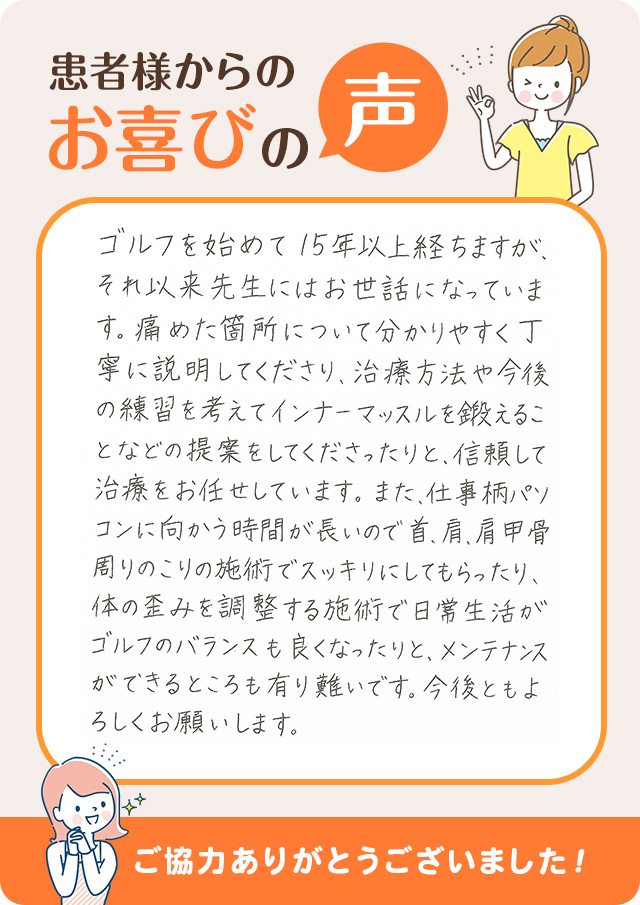 患者様からの
お喜びの声
ゴルフを始めて15年以上経ちますが、
それ以来先生にはお世話になっていま
す。痛めた箇所について分かりやすく丁
寧に説明してくださり、治療方法や今後
の練習を考えてインナーマッスルを鍛えるこ
となどの提案をしてくださったりと、信頼して
治療をお任せしています。また、仕事柄パソ
コンに向かう時間が長いので首、肩、肩甲骨
周りのこりの施術でスッキリにしてもらったり、
体の歪みを調整する施術で日常生活が
ゴルフのバランスも良くなったりと、メンテナンス
ができるところも有り難いです。今後ともよ
ろしくお願いします。
ご協力ありがとうございました！